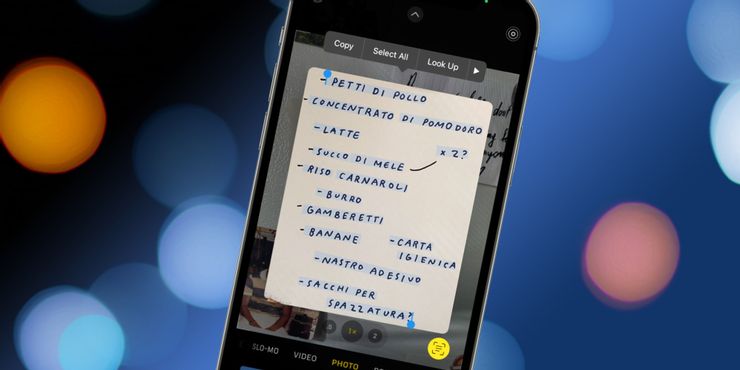 Copy Select All Look Up
- PETTI DI POLLO
- CONCENTRATO DI POMODORO
- LATTE
× 2?
- SUCCO DI MELE
- RISO CARNAROLI
- BURRO
- GAMBERETTI
- BANANE
- CARTA
IGIENICA
- NASTRO ADESIVO
- SACCHI PER
SPAZZATURA?
1× 2
SLO-MO VIDEO PHOTO